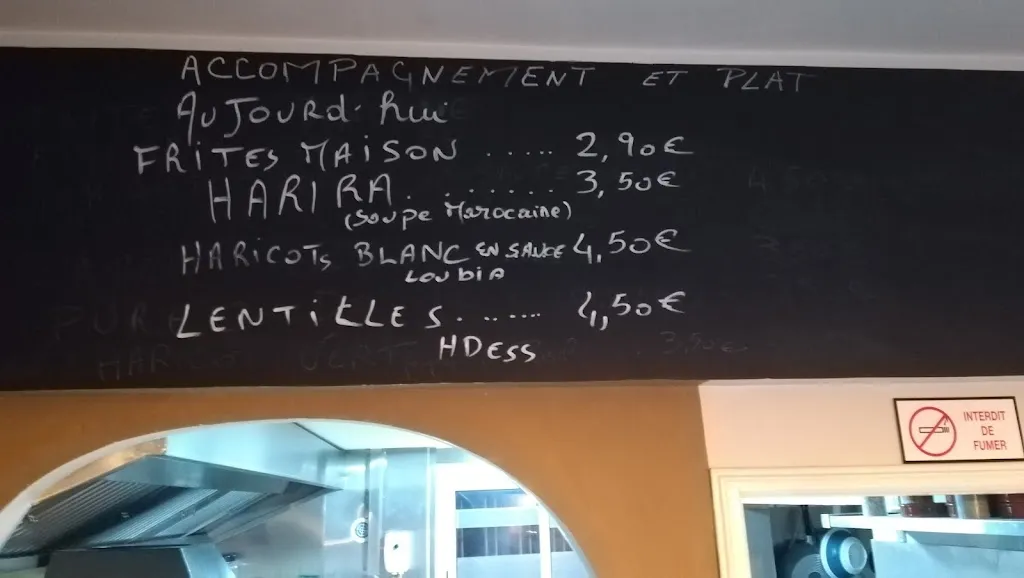 ACCOMPAGNEMENT ET PLAT
AUJOURd'hui
FRITES MAISON ..... 2,90€
HARIRA........ 3,50€
(Soupe Marocaine)
HARICOTS BLANC EN SAUCE 4,50€
Loubia
LENTILLES....... 4,50€
HDESS
INTERDIT
DE
FUMER